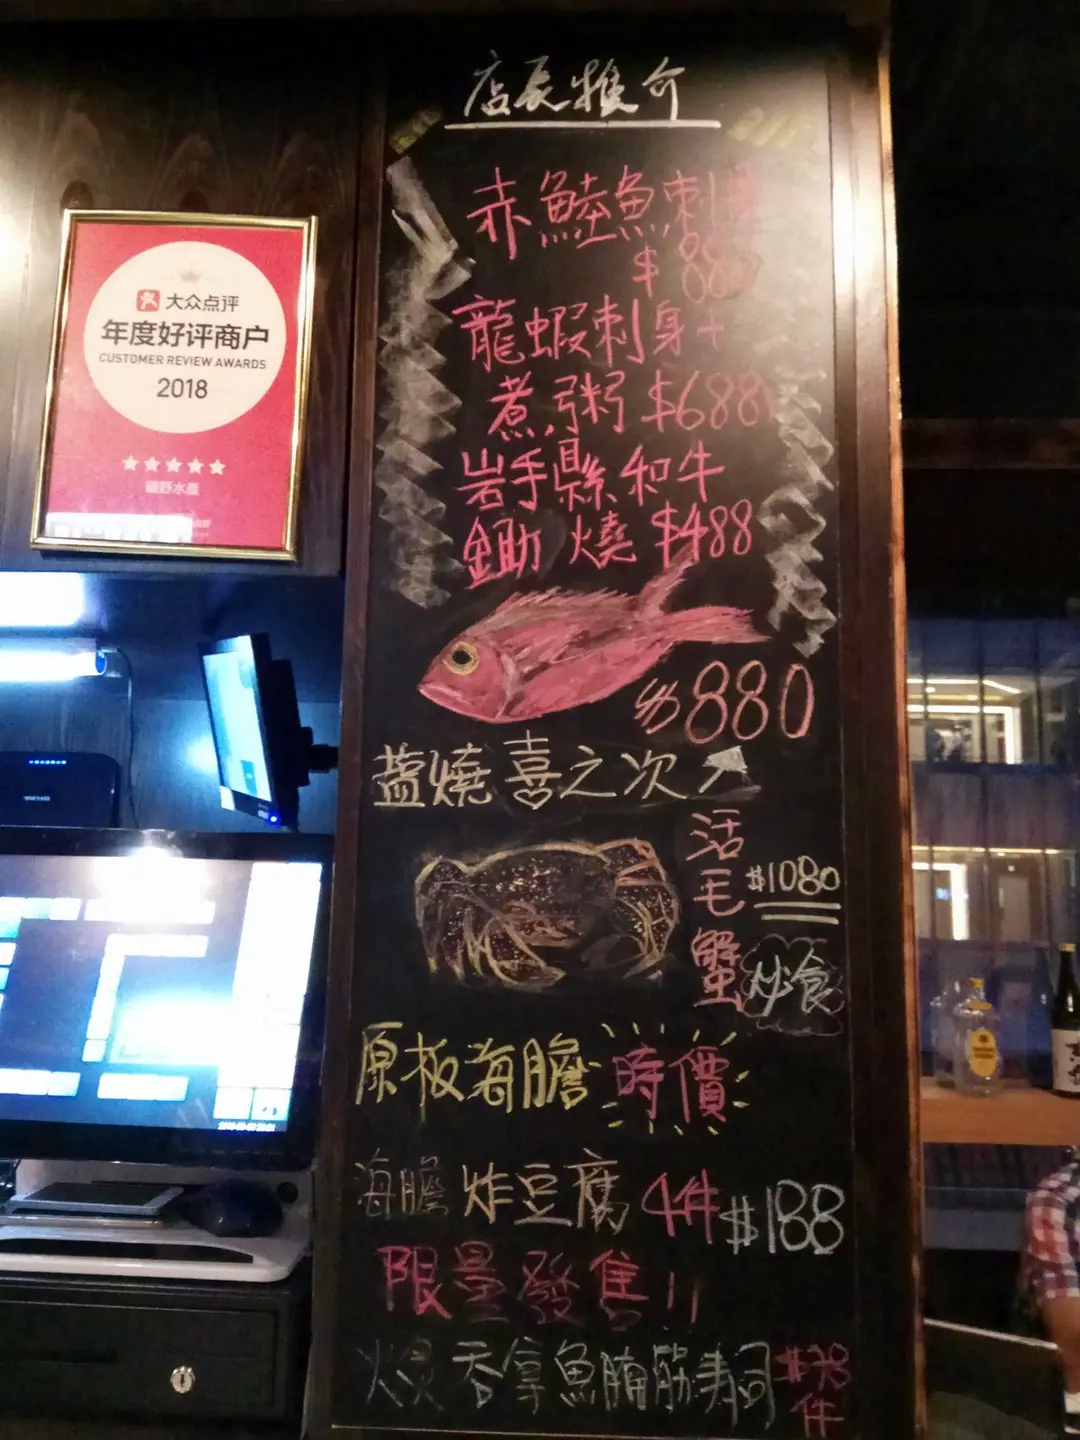 大众点评
年度好评商户
CUSTOMER REVIEW AWARDS
2018
磯野水產
店長推介
赤鯥魚刺身
$880
龍蝦刺身+
煮粥 $688
岩手縣和牛
鋤燒 $488
$880
盬燒喜之次
活毛蟹
$1080
炒食
原板海膽 時價
海膽炸豆腐 4件 $188
限量發售!!
吞拿魚腩筋壽司 $78
件